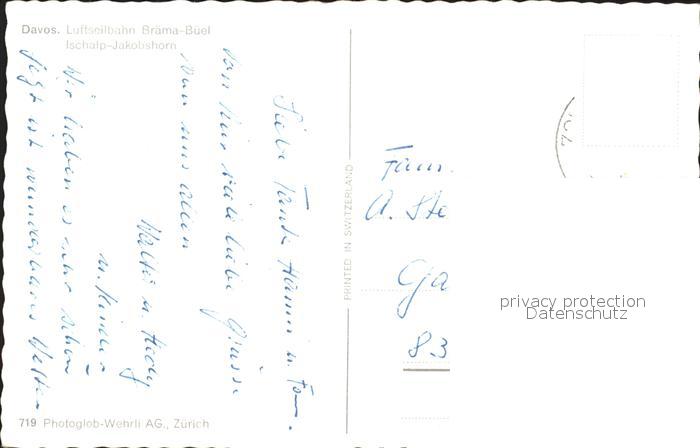 Davos. Luftseilbahn Bräma-Büel
Ischalp-Jakobshorn
Liebe Tante Hanni u. Fam.
von hier viele liebe Grüsse
von uns allen
Walti u. Hedy
u. Kinder
Wir haben es sehr schön
Jetzt ist wunderbares Wetter
PRINTED IN SWITZERLAND
Fam.
A. Ste
Ga
83
privacy protection
Datenschutz
719 Photoglob-Wehrli AG., Zürich